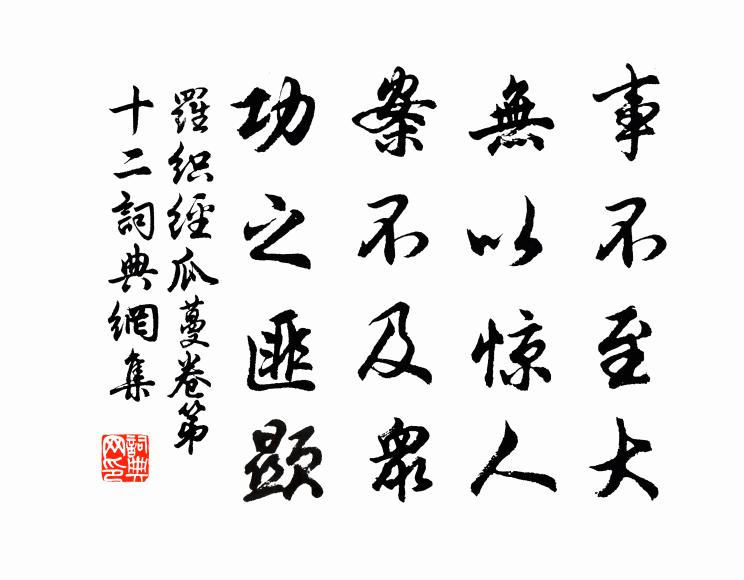 事不至大
無以惊人
案不及眾
功之匪顯
羅织經瓜蔓卷第
十二詞典網集
詞典
网印